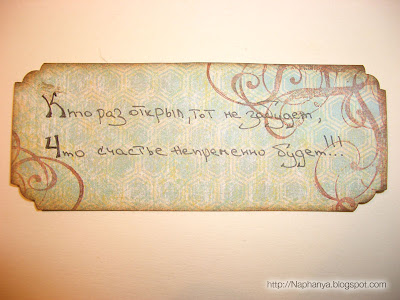 Кто раз открыл, тот не забудет,
Что счастье непременно будет...!!!
http://Naphanya.blogspot.com